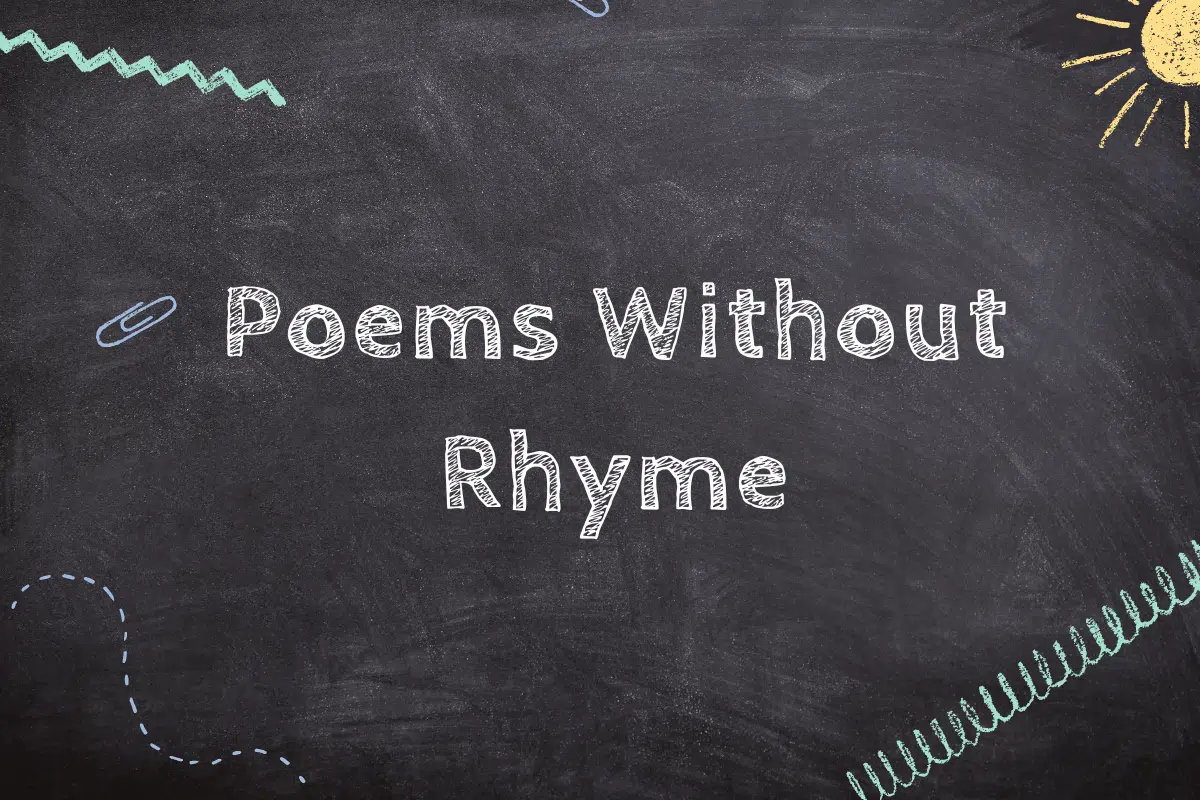 Poems Without
Rhyme